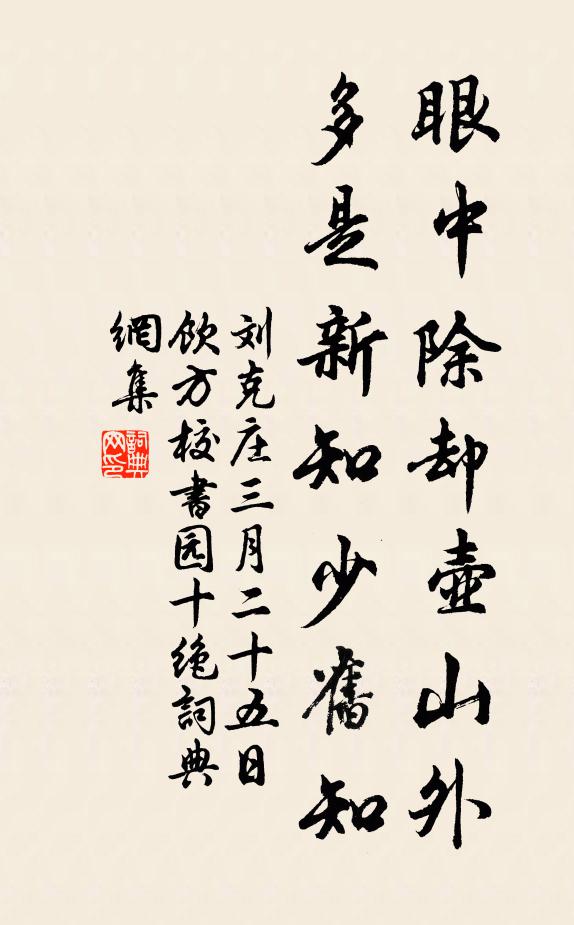 眼中除却壺山外
多是新知少舊知
刘克庄三月二十五日
飲方校書园十绝詞典
網集
詞典網印